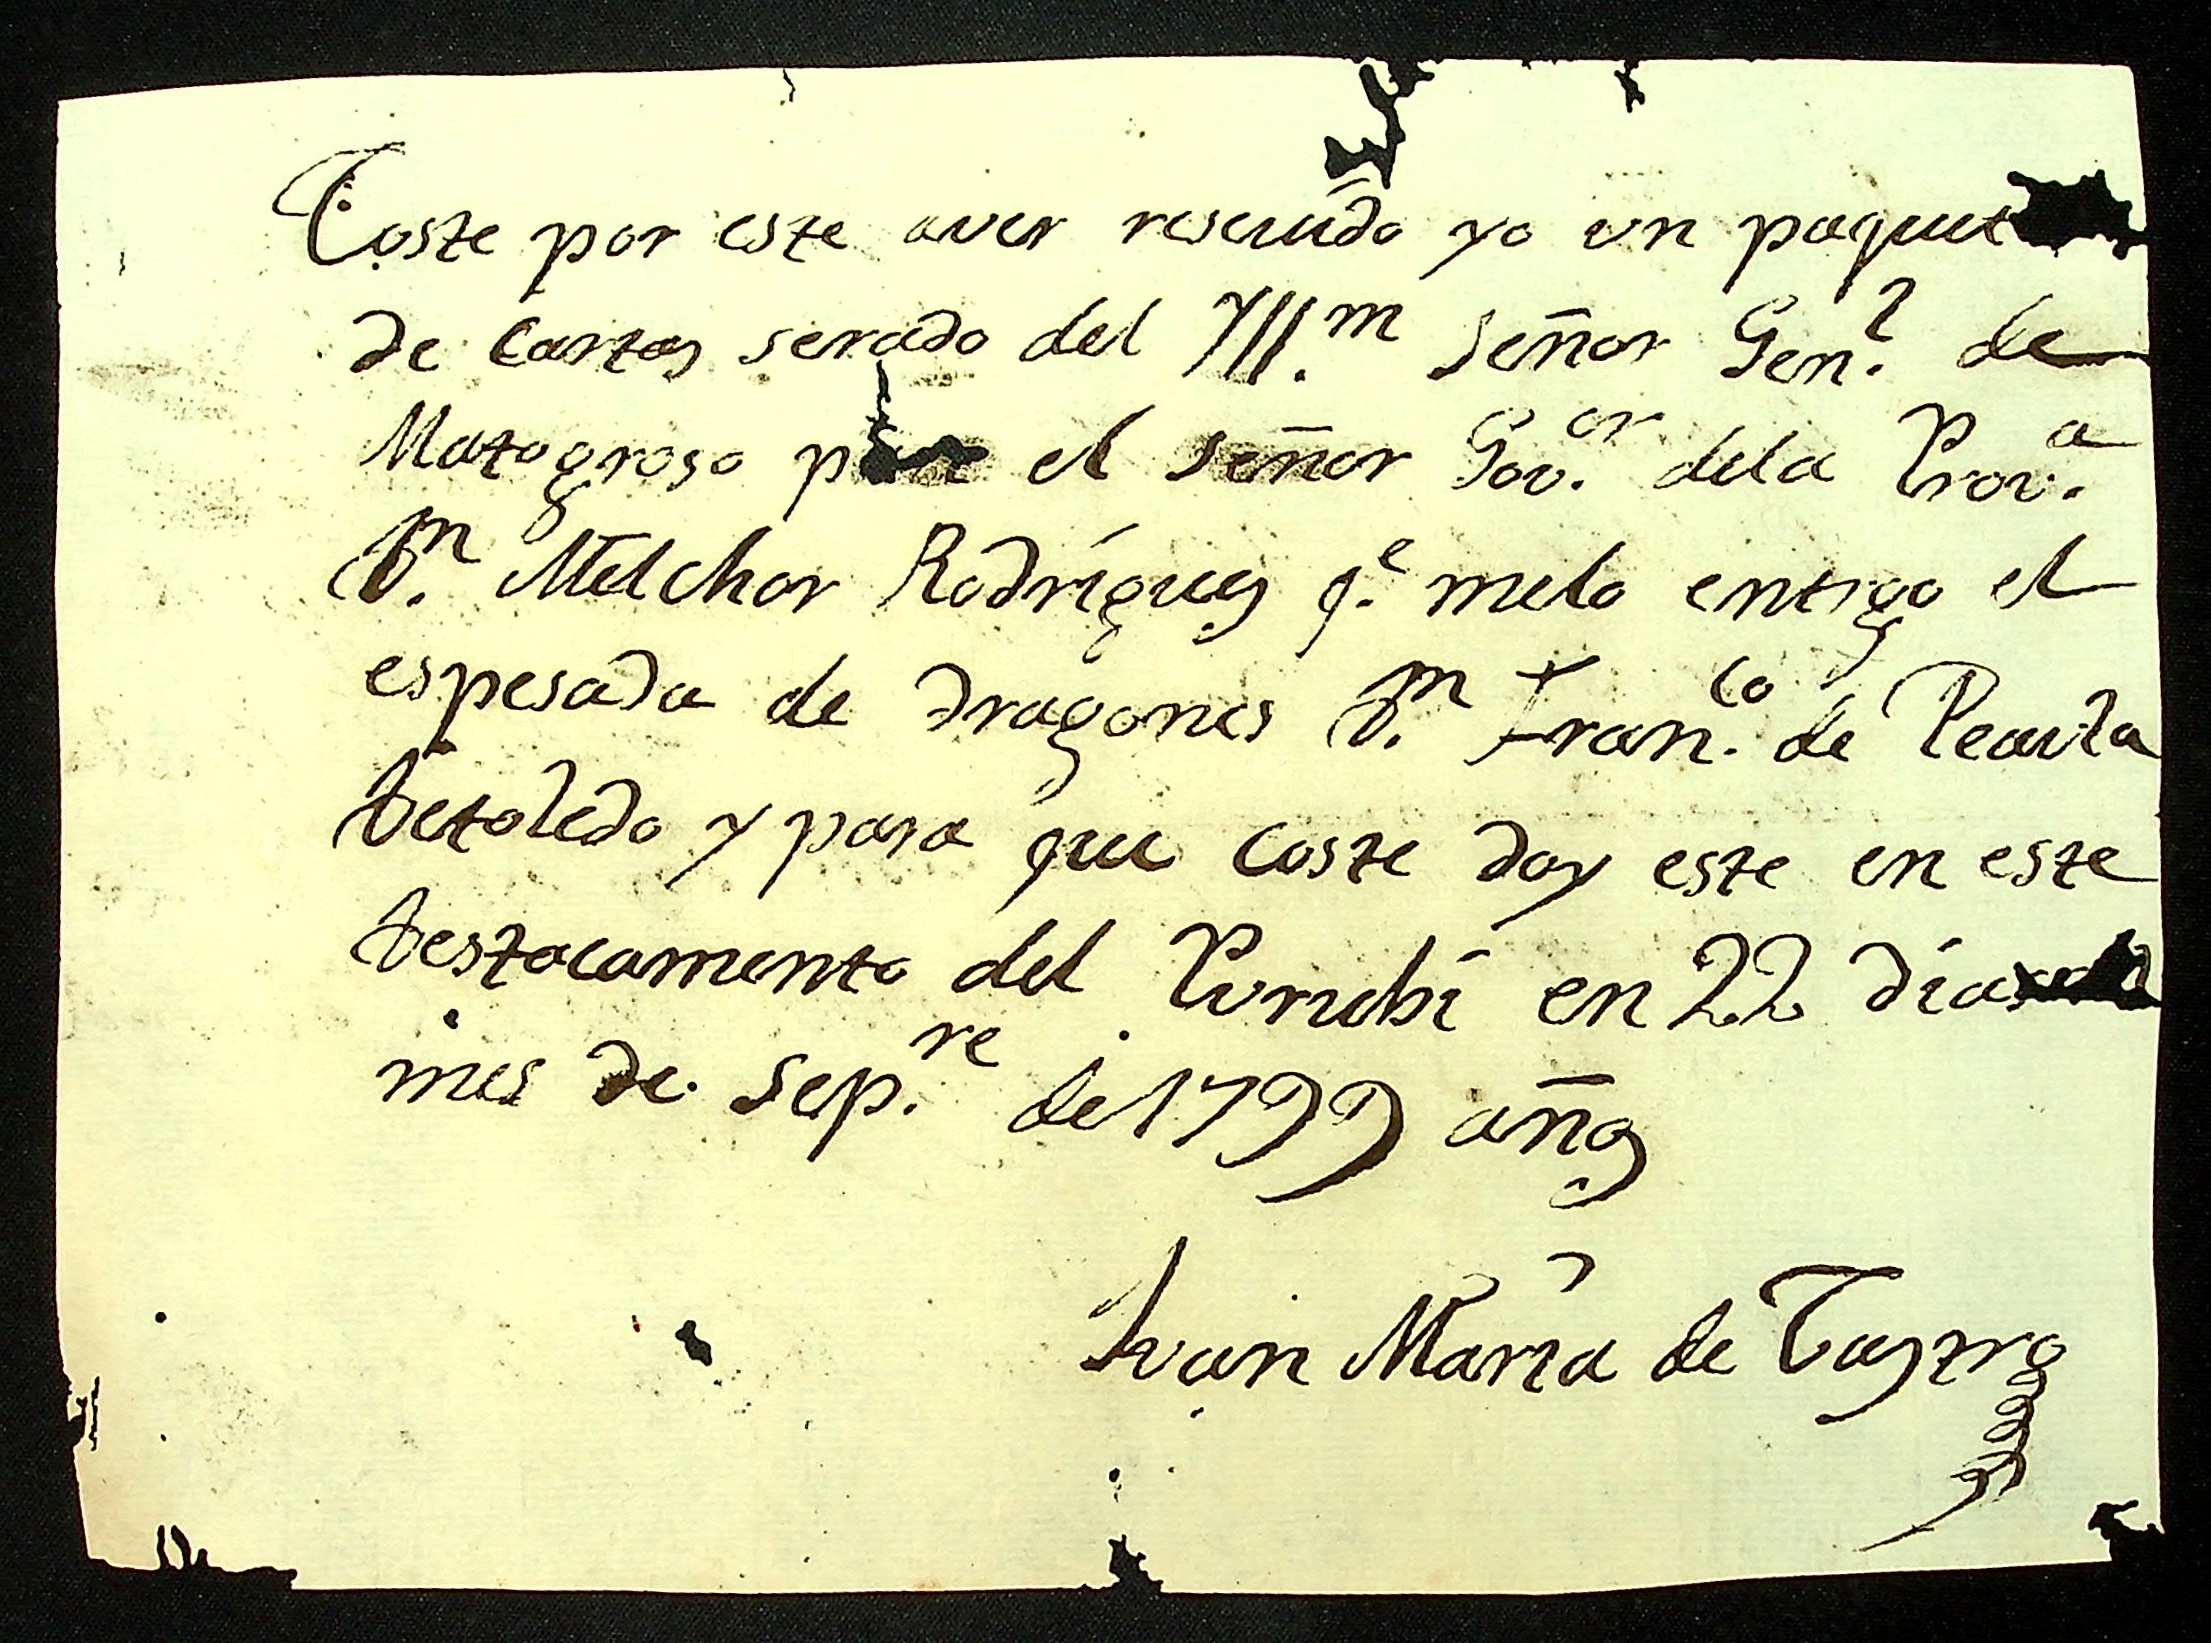 Coste por este aver reseuido yo un paquet
de Cartas serado del Yll.m Señor Gen.l de
Matogroso el Señor Gov.or dela Prov.a
D.n Melchor Rodríguez q.e melo entrgo el
espesada de dragones D.n Fran.co de Peaula
detoledo y para que coste doy este en este
destacamento del Purubi en 22 dias
mes de Sep.re de 1799 años
Juan María de Castro